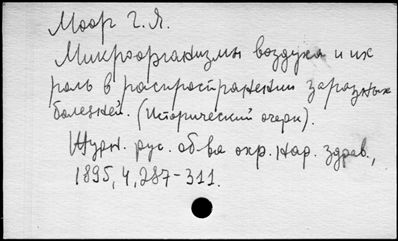 Моор Г.Я.
Микроорганизмы воздуха и их
роль в распространении заразных
болезней. (Исторический очерк).
Журн. рус. об-ва охр. нар. здрав.,
1895, 4, 287-311.